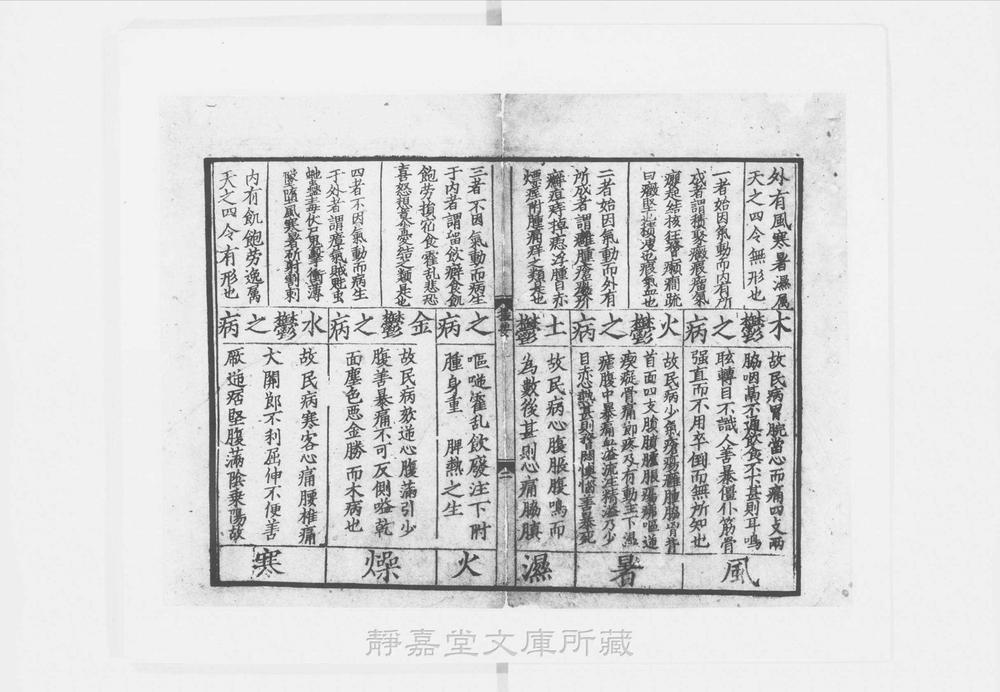 外有風寒暑濕属
天之四令無形也
一者始因氣動而内有所
成者謂積聚癥瘕瘤氣
癭起結核狂瞀癲癎䟽
曰癥堅也
二者始因氣動而外有
所成者謂癰腫瘡瘍疥
癩疽痔掉瘈浮腫目赤
熛疹胕腫痛痒之類是也
三者不因氣動而病生
于内者謂留飲癖食飢
飽劳損宿食霍乱悲恐
喜怒想慕憂結之類是也
四者不因氣動而病生
于外者謂瘴氣賊魅虫
蛇蠱毒伏尸鬼擊衝薄
墜墮風寒暑濕斫射割刺
内有飢飽劳逸属
天之四令有形也
木鬱之病
故民病胃脘當心而痛四支兩
脇咽鬲不通飲食不下甚則耳鳴
眩轉目不識人善暴僵仆筋骨
强直而不用卒倒而無所知也
風
火鬱之病
故民病少氣瘡瘍癰腫脇胷背
首面四支腹䐜臚脹瘍痱嘔逆
瘈瘲骨痛節疼及有動注下溫
瘧腹中暴痛血溢流注精液乃少
目赤心熱甚則瞀悶懊憹善暴死
暑
土鬱之病
故民病心腹脹腹鳴而
為數後甚則心痛脇䐜
嘔噦霍乱飲廢注下胕
腫身重 脾熱之生
濕
火
金鬱之病
故民病欬逆心腹滿引少
腹善暴痛不可反側嗌乾
面塵色悪金勝而木病也
燥
水鬱之病
故民病寒客心痛腰椎痛
大関郎不利屈伸不便善
厥逆痞堅腹滿陰乗陽故
寒
靜嘉堂文庫所藏